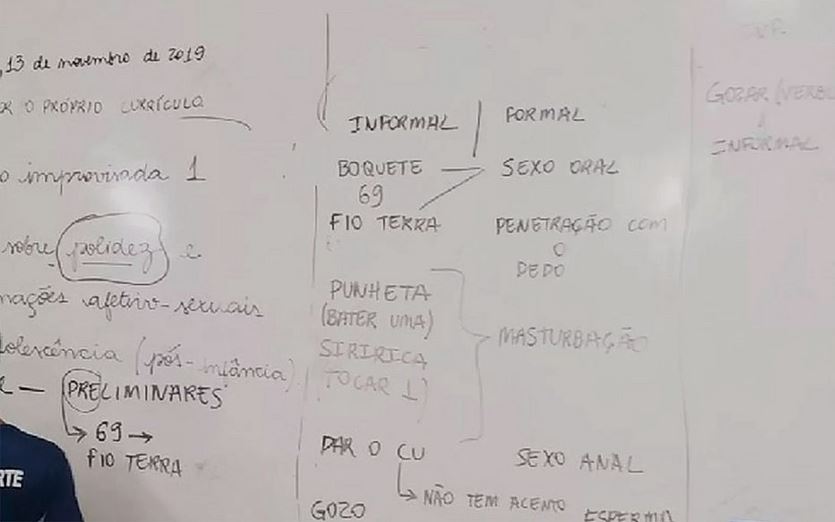 , 13 de novembro de 2019
R O PRÓPRIO CURRÍCULO
o improvisada 1
sobre polidez e
mações afetivo-sexuais
dolescência (pós-infância)
— PRELIMINARES
69
FIO TERRA
RTE
INFORMAL FORMAL
BOQUETE SEXO ORAL
69
FIO TERRA PENETRAÇÃO COM
O
DEDO
PUNHETA
(BATER UMA)
SIRIRICA MASTURBAÇÃO
TOCAR 1)
DAR O CU SEXO ANAL
NÃO TEM ACENTO
GOZO ESPERMA
INF.
GOZAR (VERB
INFORMAL